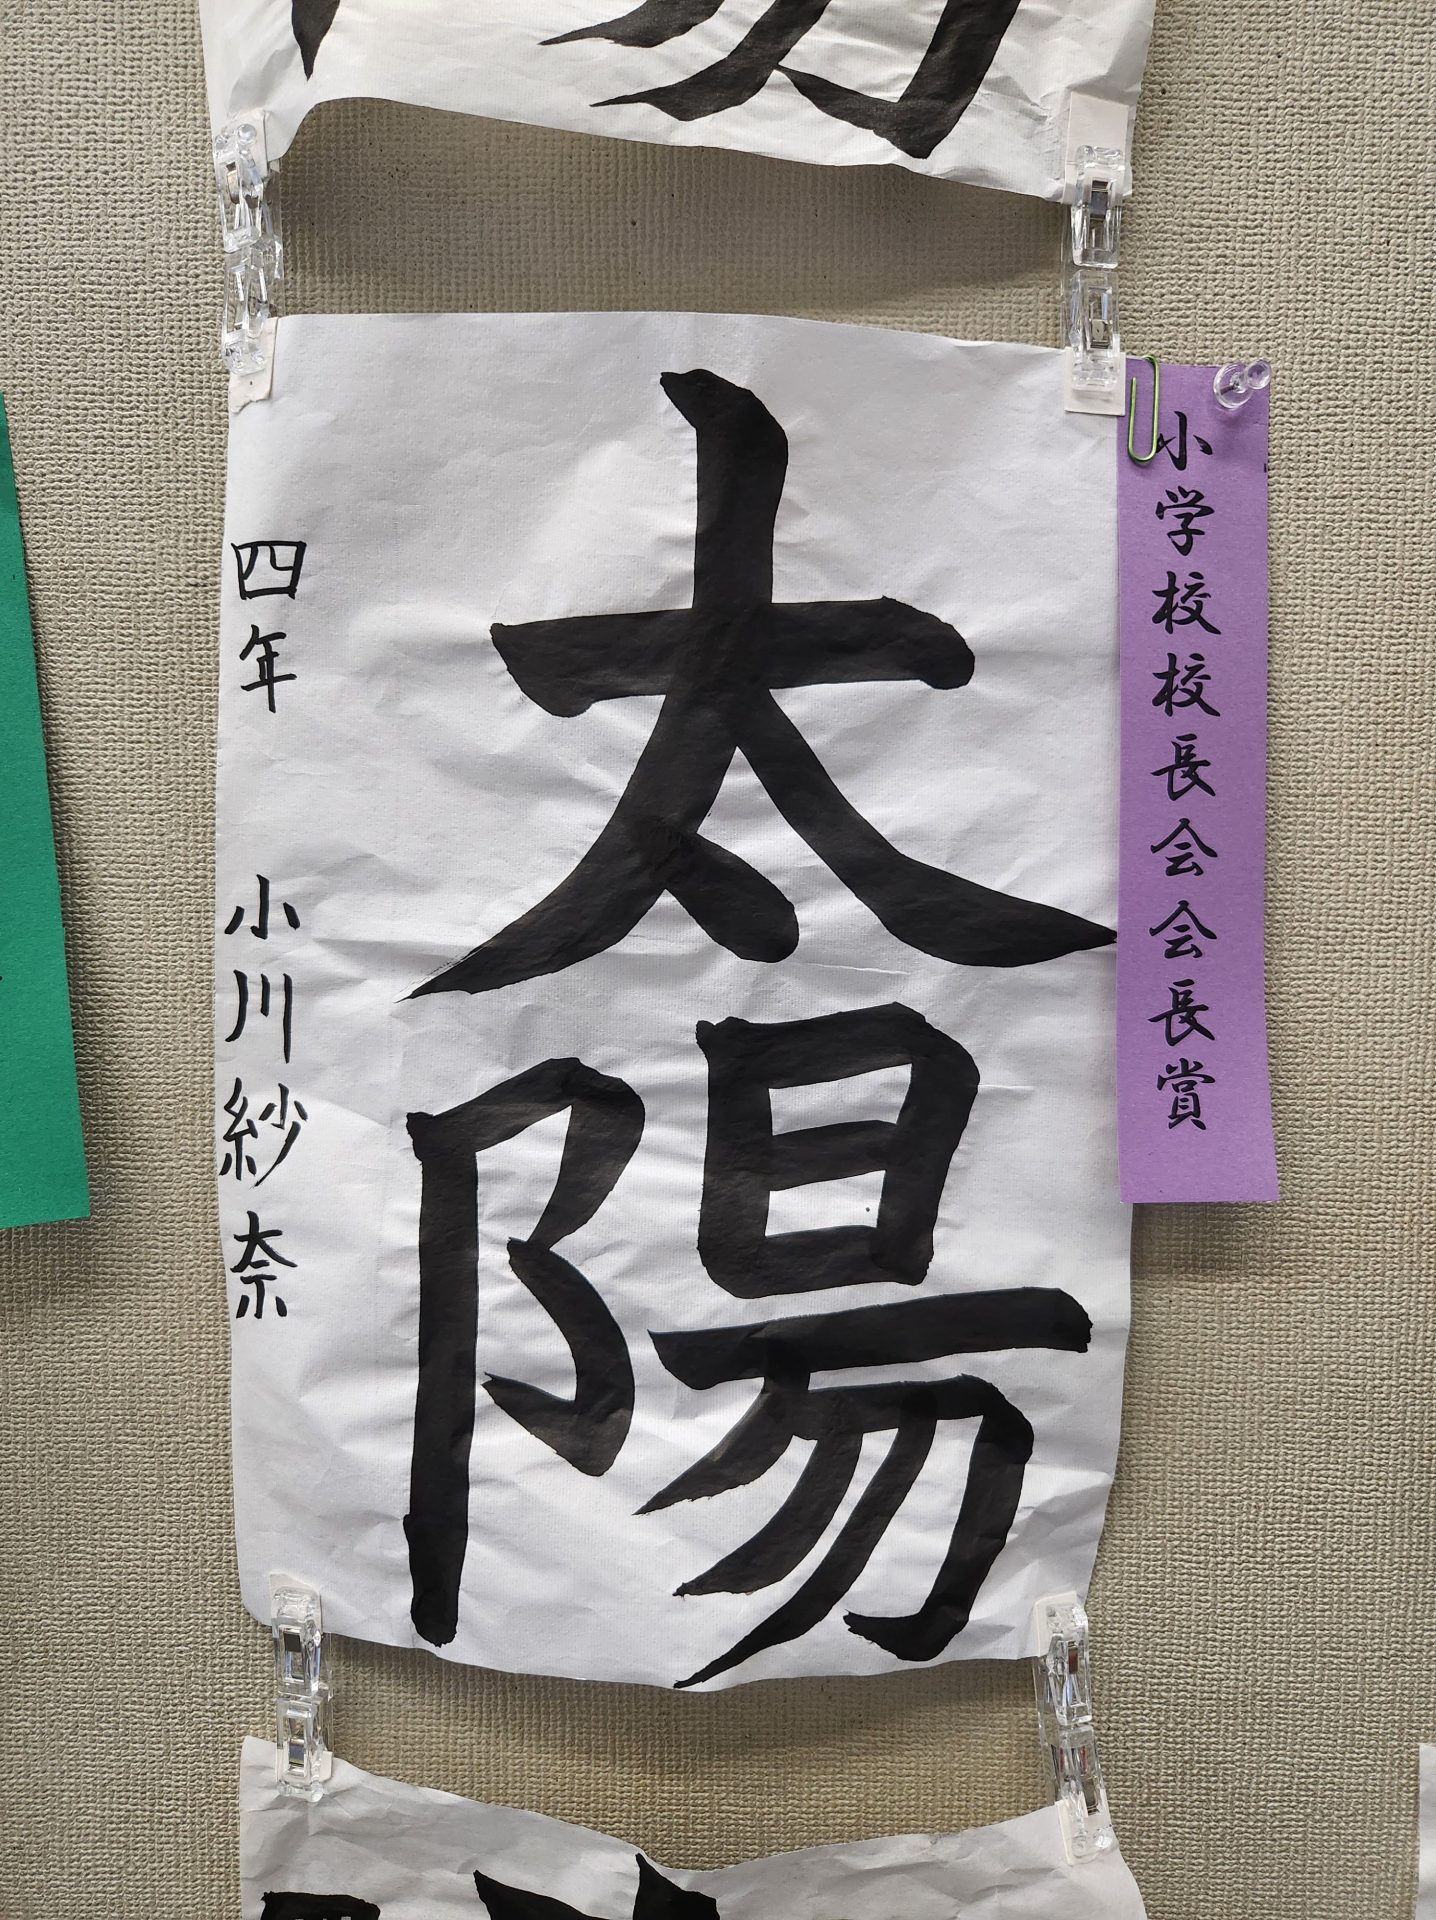 小学校校長会会長賞
太陽
四年 小川紗奈